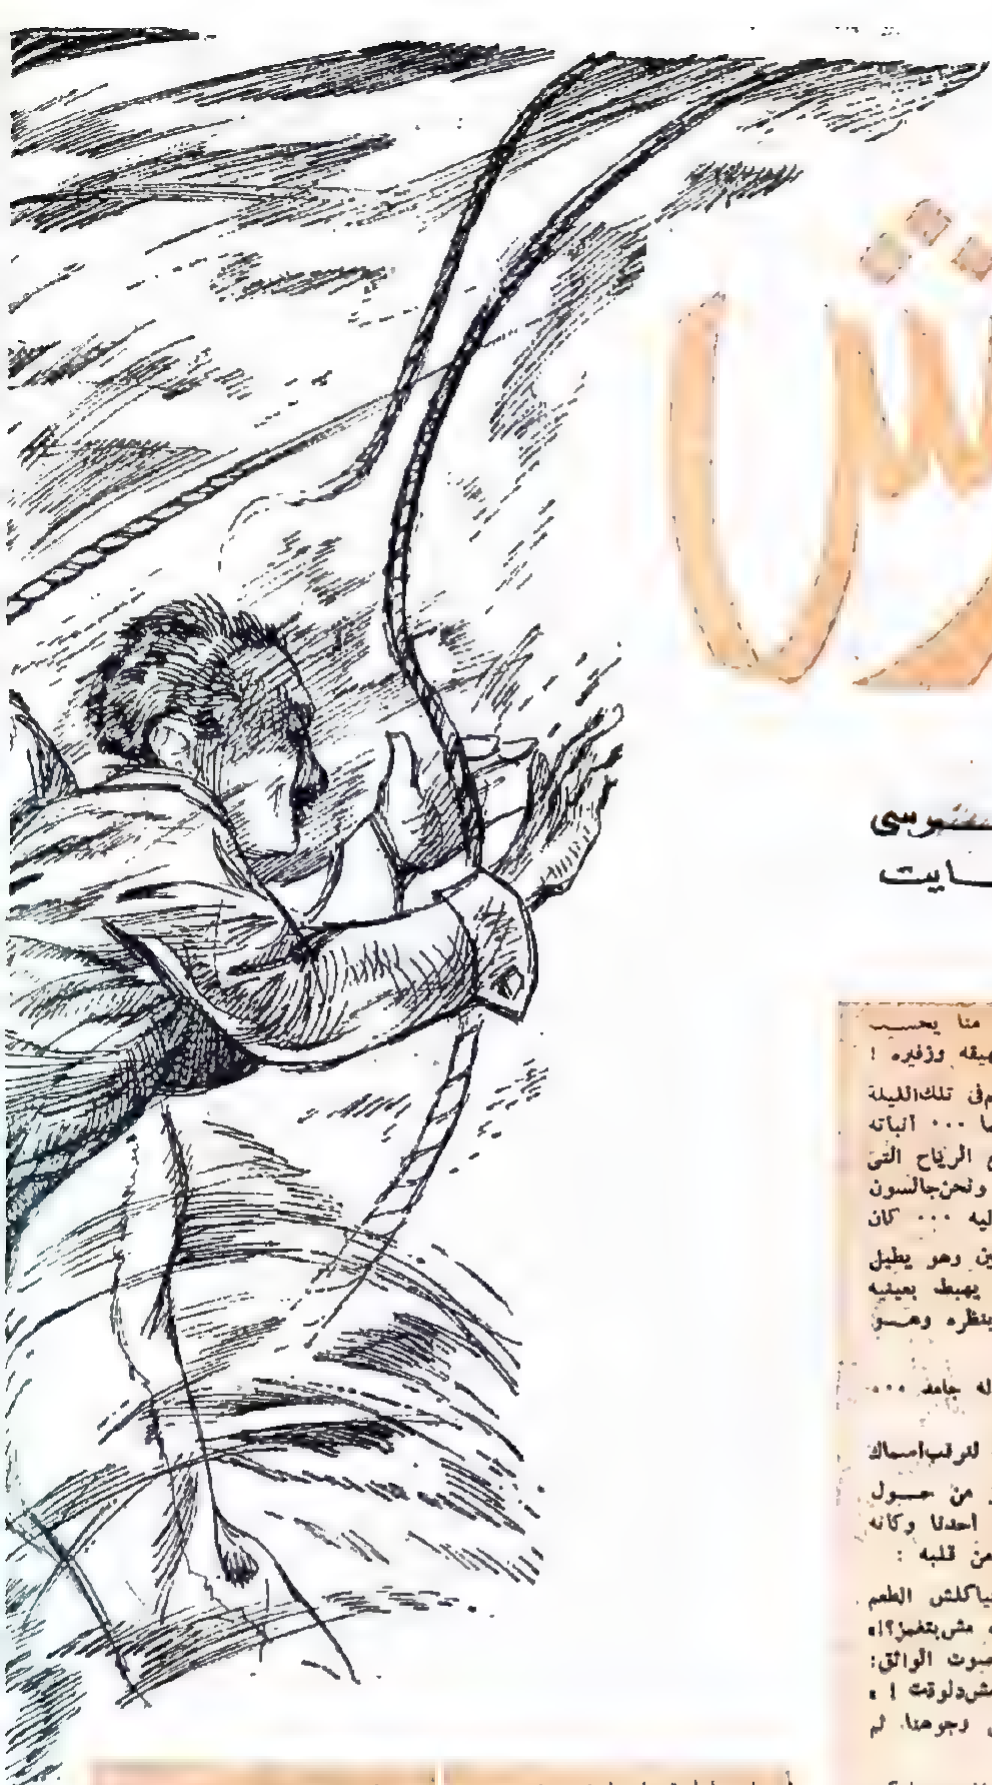 ش
مرسى
ايت
منا يحسب
هيقه وزفيره !
م فى تلك الليلة
ما ٠٠٠ أنباته
ع الرياح التى
ونحن جالسون
ليه ٠٠٠ كان
ين وهو يطيل
يهبط بعينيه
ينظره وهــو
له جامد ٠٠٠
لنرقب أسماك
من حــول
أحدنا وكأنه
من قلبه :
مياكلش الطعم
مش بتغمز؟!»
صوت الواثق:
مش دلوقت ! »
وجوهنا، لم